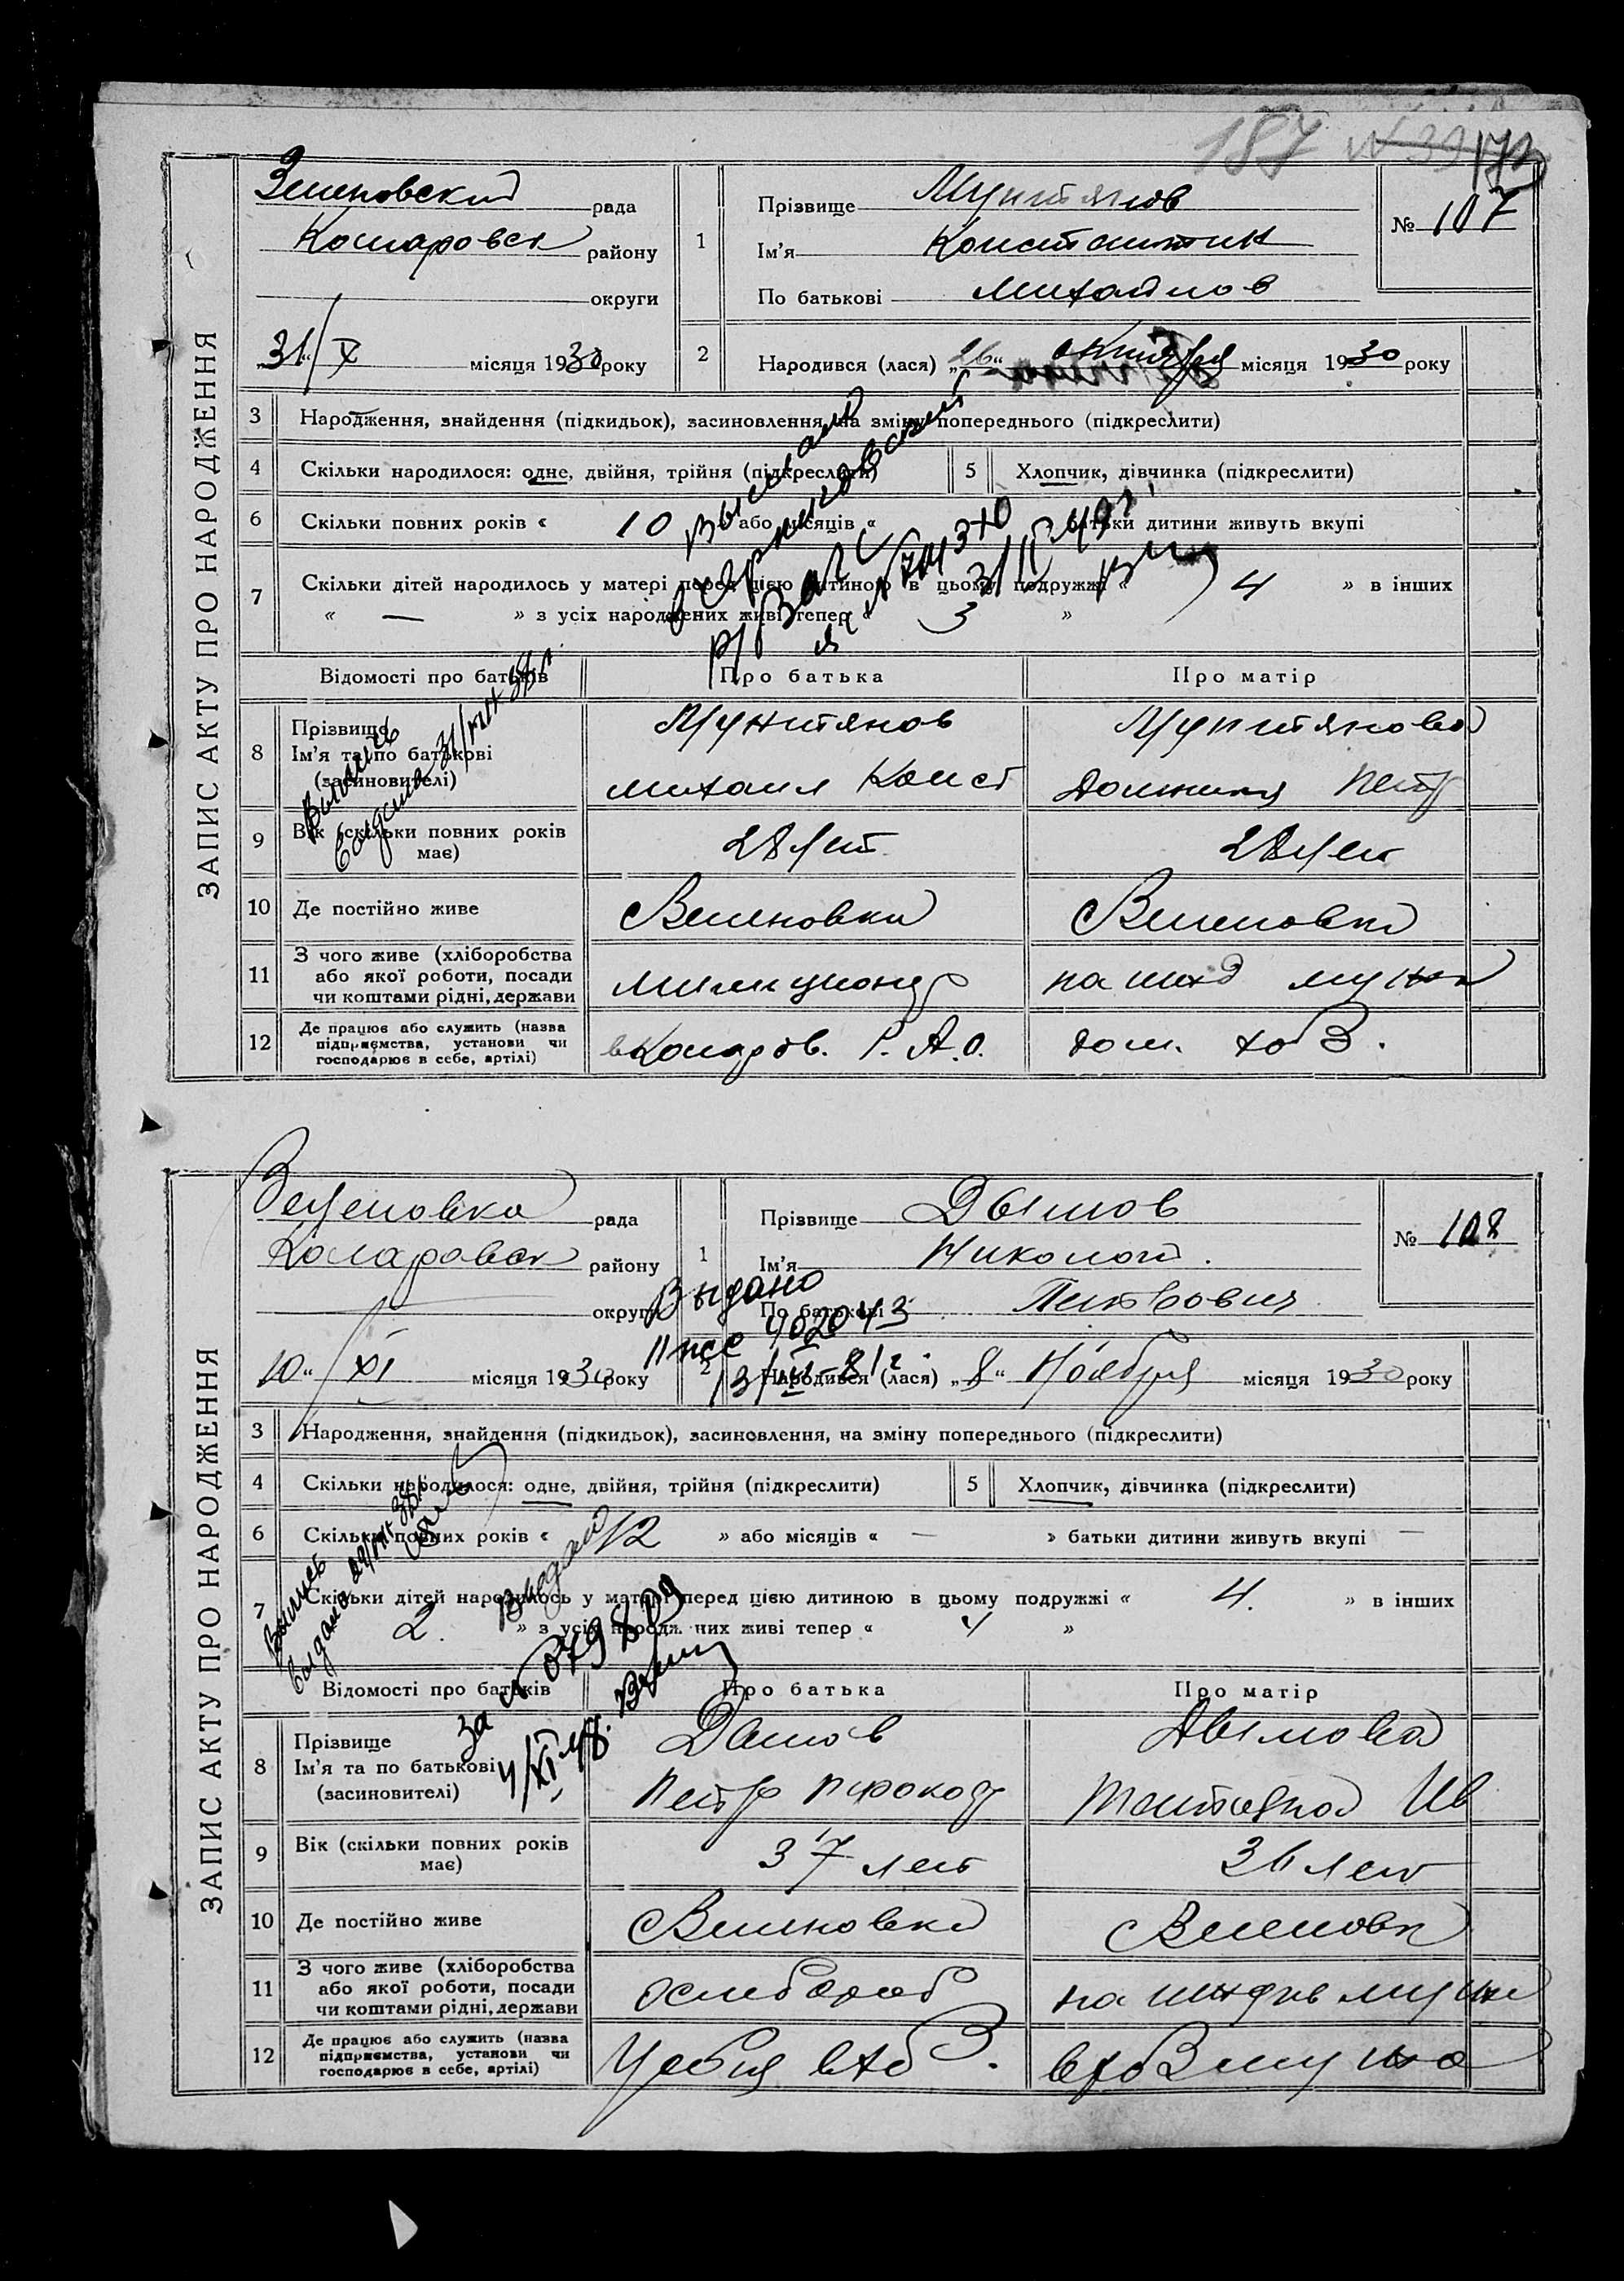 187 № 39
172
ЗАПИС АКТУ ПРО НАРОДЖЕННЯ
Зеленовский рада
Коларовск району
округи
31/X місяця 1930 року
1
Прізвище Мунтянов
Ім'я Константин
По батькові Михайлов
№ 107
2
Народився (лася) „26“ октября місяця 1930 року
3 Народження, знайдення (підкидьок), засиновлення, на зміну попереднього (підкреслити)
4 Скільки народилося: одне, двійня, трійня (підкреслити)
5 Хлопчик, дівчинка (підкреслити)
6 Скільки повних років « 10 або місяців « батьки дитини живуть вкупі
7 Скільки дітей народилось у матері перед цією дитиною в цьому подружжі « 4 » в інших
« — » з усіх народжених живі тепер « 3 »
Выслано
РЗАГС
Выпись
выдана 31/
Відомості про батьків Про батька Про матір
8 Прізвище
Ім'я та по батькові
(засиновителі)
Мунтянов
Михаил Конст
Мунтянова
Домникия Петр
9 Вік (скільки повних років
має)
28 лет
28 лет
10 Де постійно живе
Зеленовка
Зеленовка
11 З чого живе (хліборобства
або якої роботи, посади
чи коштами рідні, держави
милиционер
на ижд мужа
12 Де працює або служить (назва
підприємства, установи чи
господарює в себе, артілі)
в Коларов. Р. А. О.
дом. хоз.
ЗАПИС АКТУ ПРО НАРОДЖЕННЯ
Зеленовка рада
Коларовск району
округи
10“/XI місяця 1930 року
1
Прізвище Дымов
Ім'я Николай.
По батькові Петрович
№ 108
Выдано
2
Народився (лася) „8“ Ноября місяця 1930 року
3 Народження, знайдення (підкидьок), засиновлення, на зміну попереднього (підкреслити)
4 Скільки народилося: одне, двійня, трійня (підкреслити)
5 Хлопчик, дівчинка (підкреслити)
6 Скільки повних років « 12 » або місяців « — » батьки дитини живуть вкупі —
7 Скільки дітей народилось у матері перед цією дитиною в цьому подружжі « 4. » в інших
2. » з усіх народжених живі тепер « 4 »
Выпись
выдана
за № 079809
Відомості про батьків Про батька Про матір
8 Прізвище
Ім'я та по батькові
(засиновителі)
Дымов
Петр Прокоф
Дымова
Татияна Ив
9 Вік (скільки повних років
має)
37 лет
36 лет
10 Де постійно живе
Зеленовка
Зеленовк
11 З чого живе (хліборобства
або якої роботи, посади
чи коштами рідні, держави
хлебороб
на иждив мужа
12 Де працює або служить (назва
підприємства, установи чи
господарює в себе, артілі)
У себя в хоз.
в хоз мужа